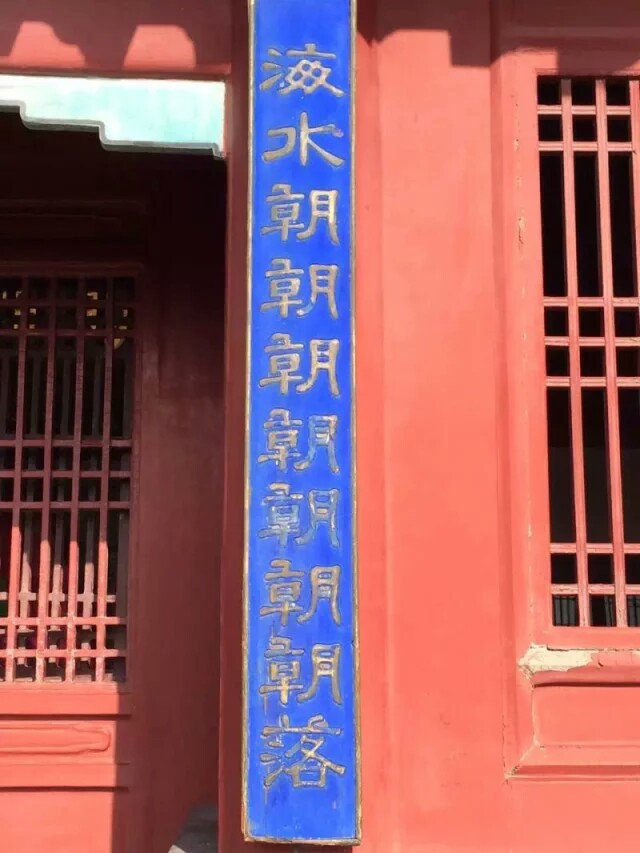 海水朝朝朝朝朝朝朝落